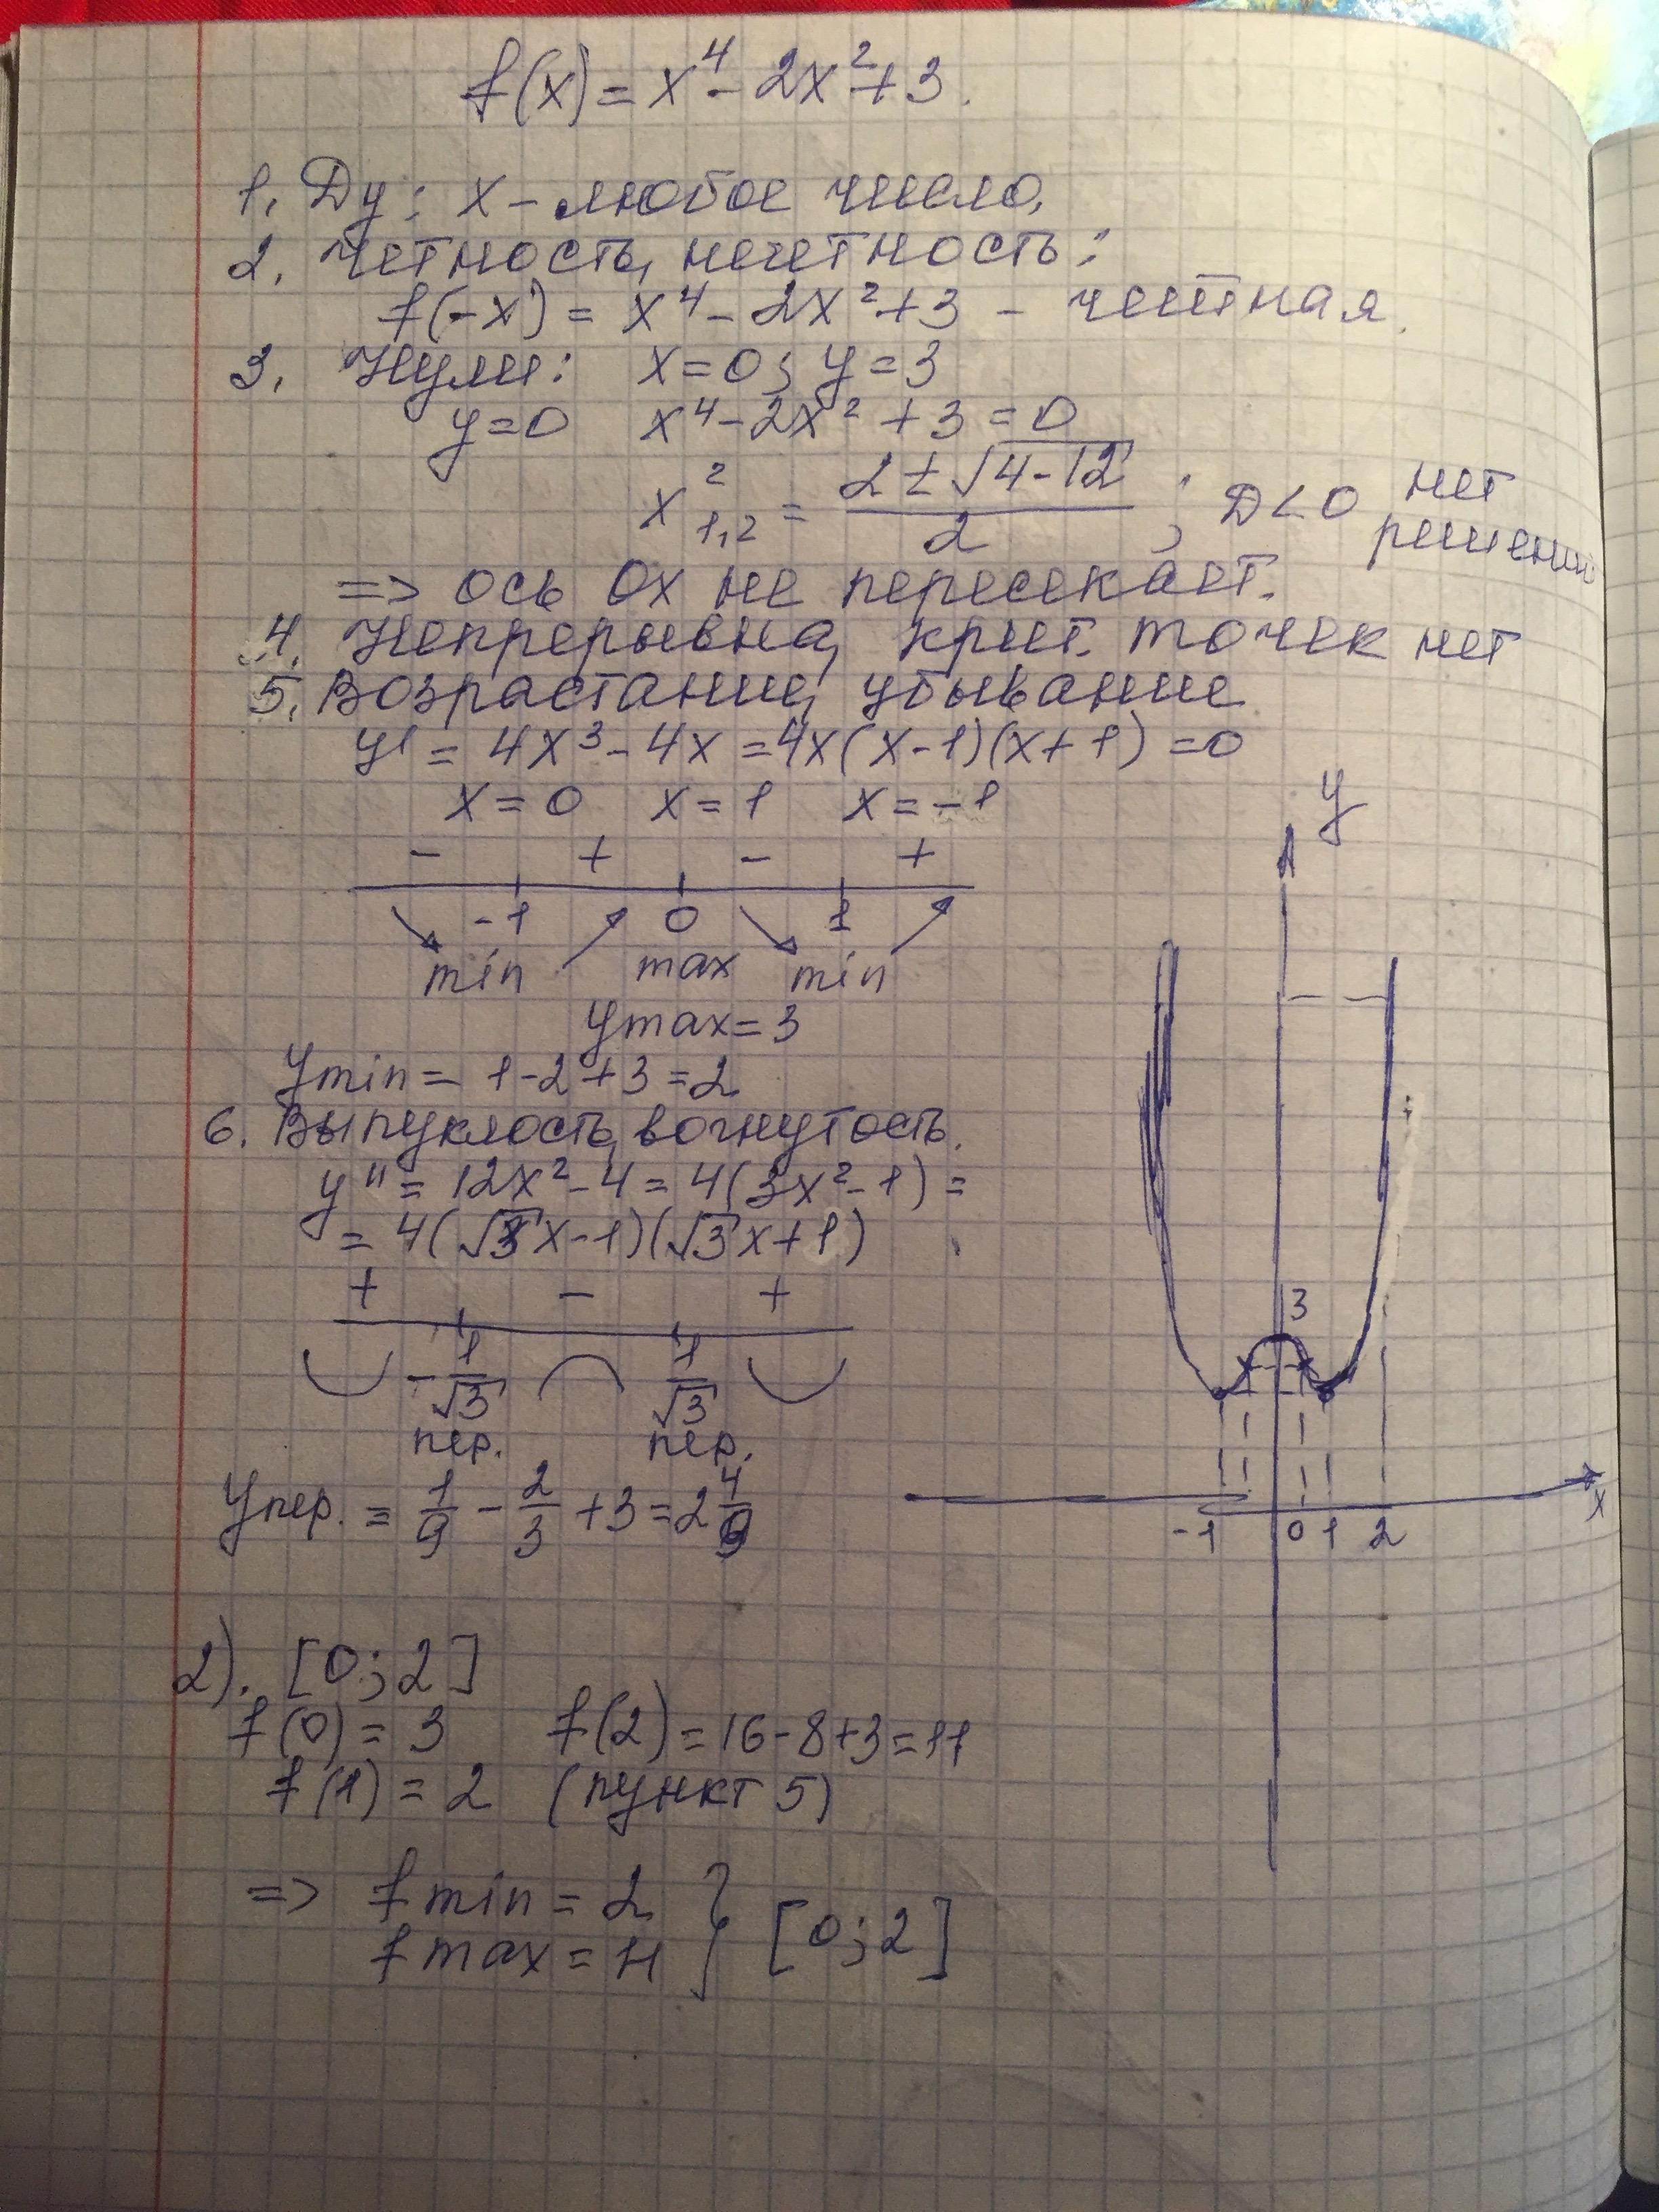 f(x) = x⁴ - 2x² + 3.
1. Dy: x - любое число,
2. четность, нечетность:
f(-x) = x⁴ - 2x² + 3 - четная.
3. Нули: x = 0; y = 3
y = 0 x⁴ - 2x² + 3 = 0
x²₁,₂ = (2 ± √(4-12))/2 ; D < 0 нет решений
=> ось Ox не пересекает.
4. Непрерывна, крит. точек нет
5. Возрастание, убывание
y' = 4x³ - 4x = 4x(x-1)(x+1) = 0
x = 0 x = 1 x = -1
- + - +
-1 0 1
min max min
ymax = 3
ymin = 1 - 2 + 3 = 2
6. Выпуклость, вогнутость.
y'' = 12x² - 4 = 4(3x² - 1) =
= 4(√3x - 1)(√3x + 1)
+ - +
-1/√3 1/√3
пер. пер.
yпер. = 1/9 - 2/3 + 3 = 2 4/9
y
3
-1 0 1 2
x
2). [0; 2]
f(0) = 3 f(2) = 16 - 8 + 3 = 11
f(1) = 2 (пункт 5)
=> f min = 2
f max = 11 } [0; 2]